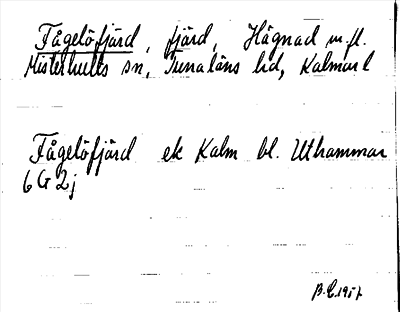 Fågelöfjärd, fjärd, Hägnad m.fl.
Misterhults sn, Tunaläns hd, Kalmar l
Fågelöfjärd ek Kalm bl. Uthammar
6G2j
B.E. 1957